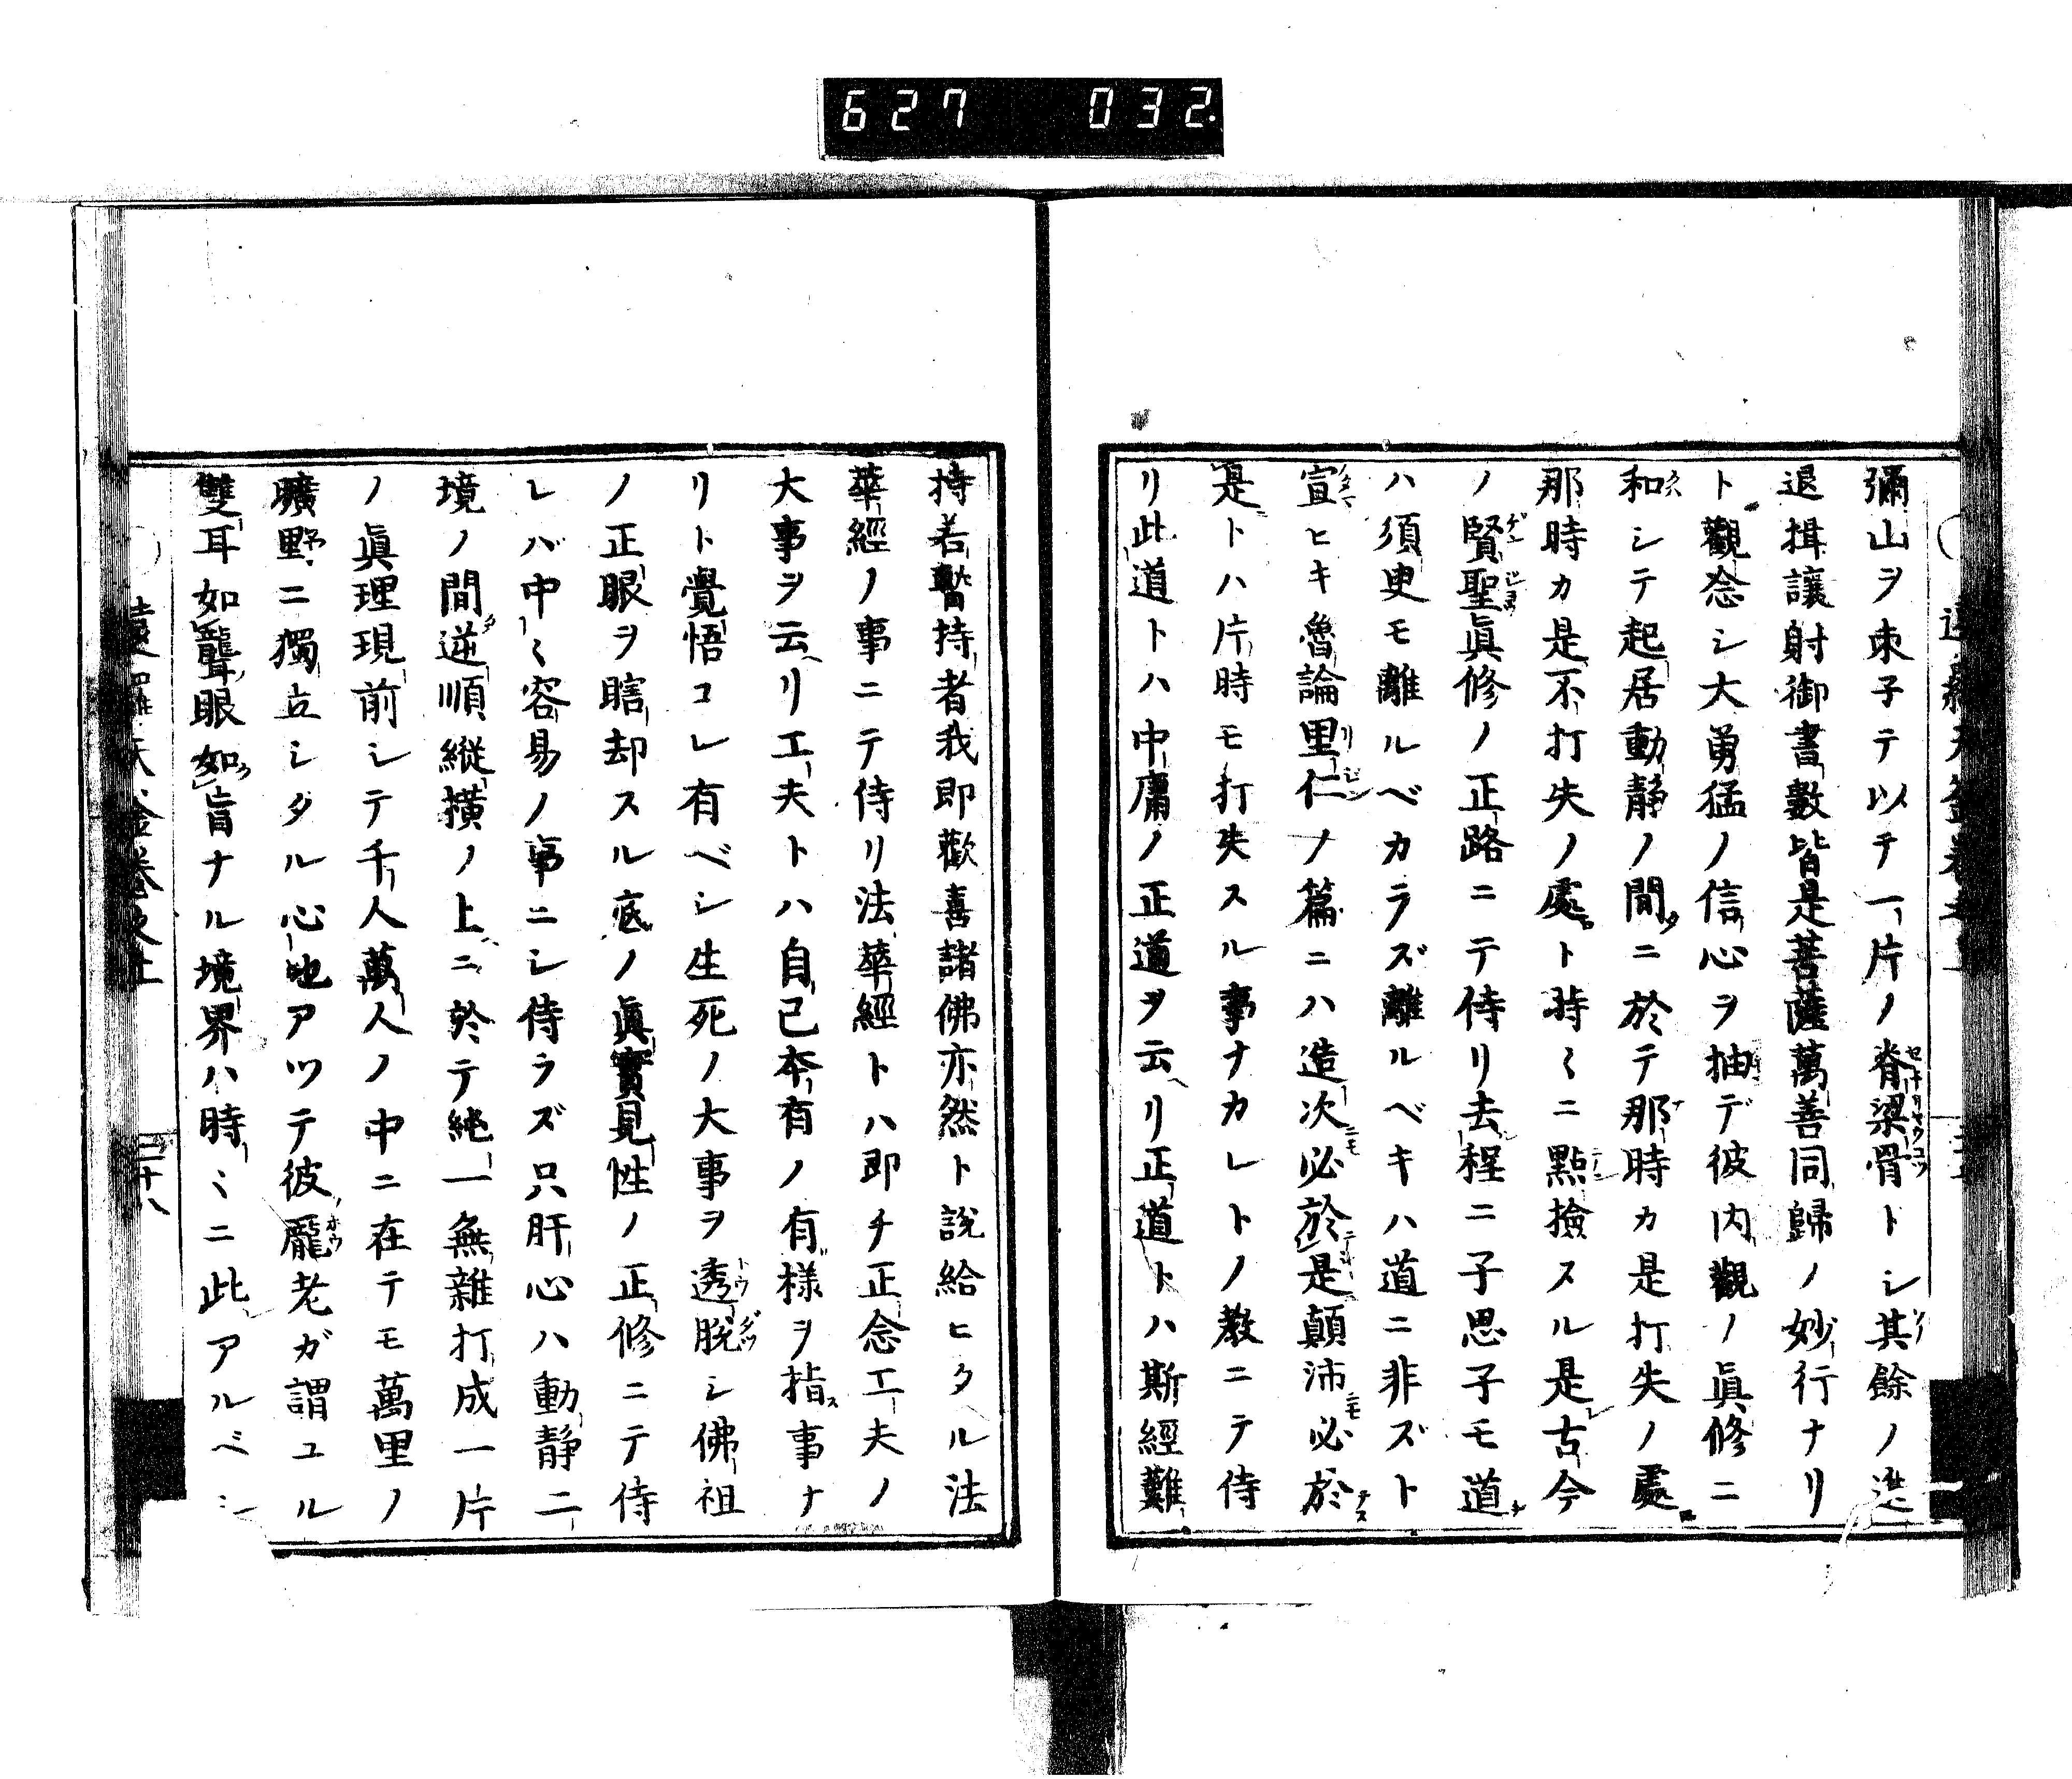 627 032
彌山ヲ束子テ以チ一片ノ脊梁骨トシ其餘ノ進
退揖讓射御書數皆是菩薩萬善同歸ノ妙行ナリ
ト觀念シ大勇猛ノ信心ヲ抽デ彼内觀ノ眞修ニ
和シテ起居動靜ノ間ニ於テ那時カ是打失ノ處
那時カ是不打失ノ處ト時〻ニ點撿スル是古今
ノ賢聖眞修ノ正路ニテ侍リ去程ニ子思子モ道
ハ須臾モ離ルベカラズ離ルベキハ道ニ非ズト
宣ヒキ魯論里仁ノ篇ニハ造次必於是顛沛必於
是トハ片時モ打失スル事ナカレトノ教ニテ侍
リ此道トハ中庸ノ正道ヲ云リ正道トハ斯經難
持若暫持者我即歡喜諸佛亦然ト説給ヒタル法
華經ノ事ニテ侍リ法華經トハ即チ正念工夫ノ
大事ヲ云リ工夫トハ自己本有ノ有様ヲ指事ナ
リト覺悟コレ有ベシ生死ノ大事ヲ透脱シ佛祖
ノ正眼ヲ瞎却スル底ノ眞實見性ノ正修ニテ侍
レバ中〻容易ノ事ニシ侍ラズ只肝心ハ動靜二
境ノ間逆順縱横ノ上ニ於テ純一無雜打成一片
ノ眞理現前シテ千人萬人ノ中ニ在テモ萬里ノ
曠野ニ獨立シタル心地アツテ彼龐老ガ謂ユル
雙耳如聾眼如盲ナル境界ハ時〻ニ此アルベシ
遠羅天釜卷之上 二十八